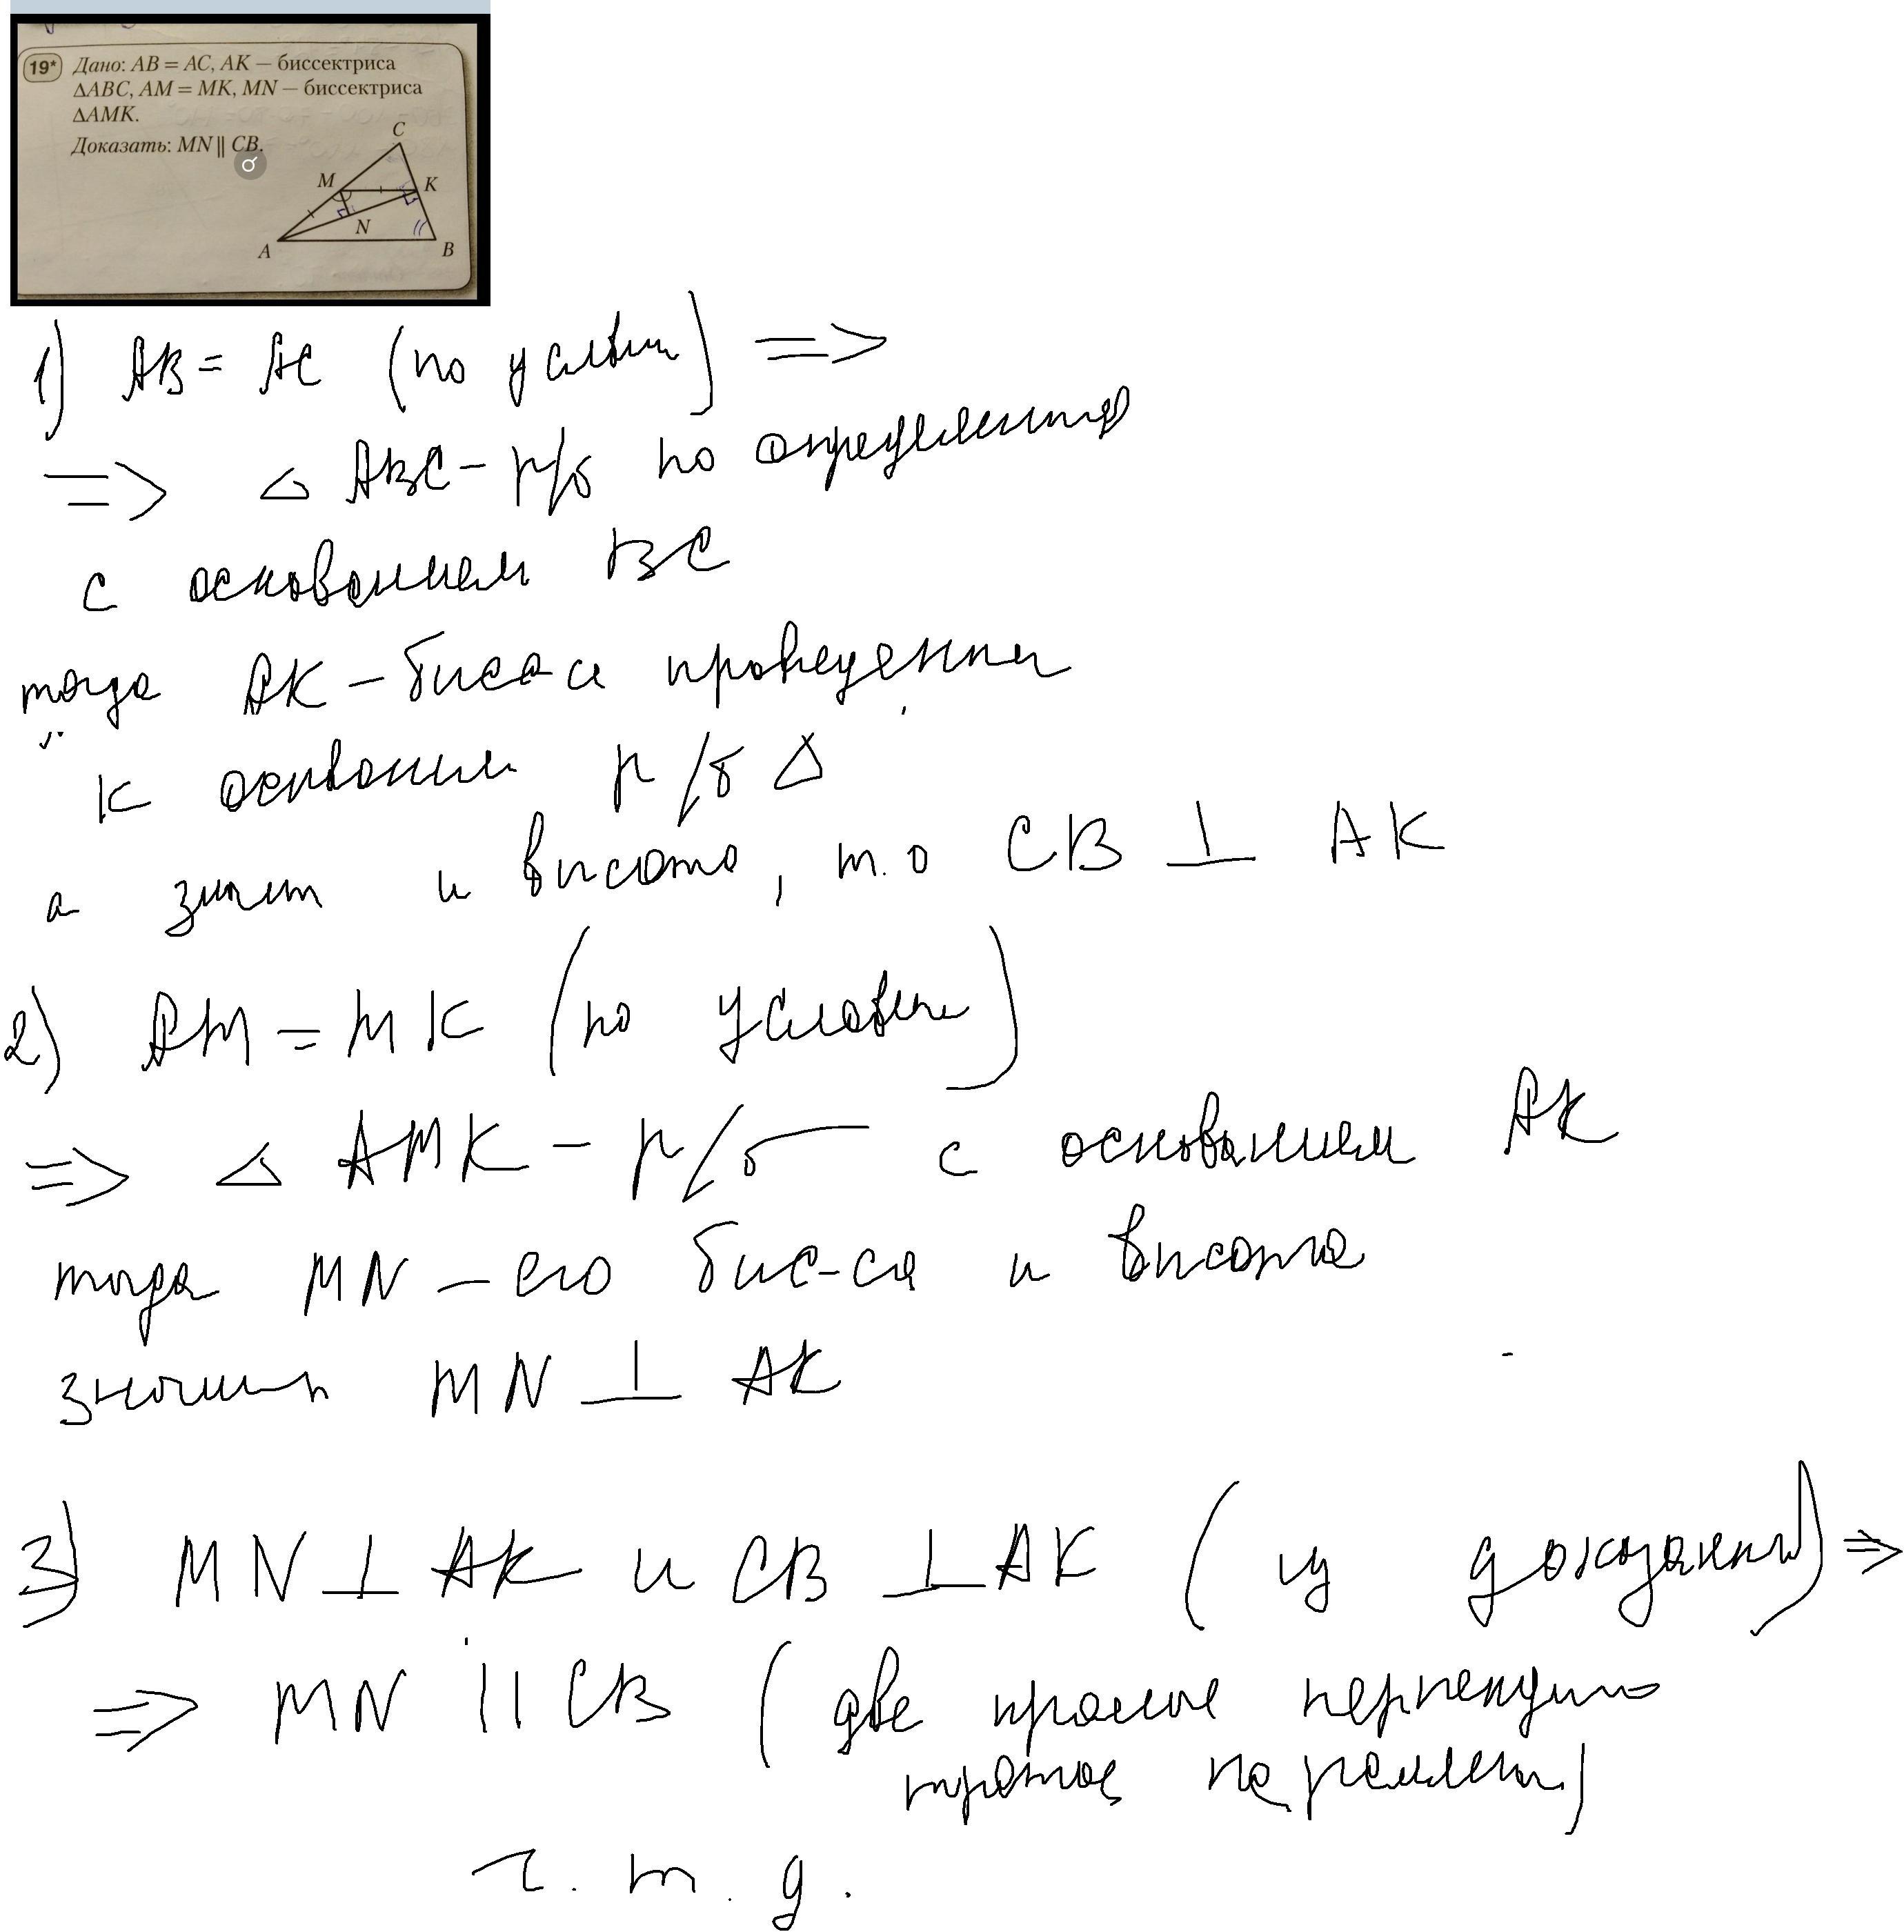 19* Дано: AB = AC, AK — биссектриса
ΔABC, AM = MK, MN — биссектриса
ΔAMK.
Доказать: MN || CB.
C
M
K
N
A
B
1) AB = AC (по условию) =>
=> △ ABC - р/б по определению
с основанием BC
тогда AK - бисс-са проведенная
к основанию р/б △
а значит и высота, т.о CB ⊥ AK
2) AM = MK (по условию)
=> △ AMK - р/б с основанием AK
тогда MN - его бис-са и высота
значит MN ⊥ AK
3) MN ⊥ AK и CB ⊥ AK (из доказанного) =>
=> MN || CB (две прямые перпендик
третьей
ч. т. д.